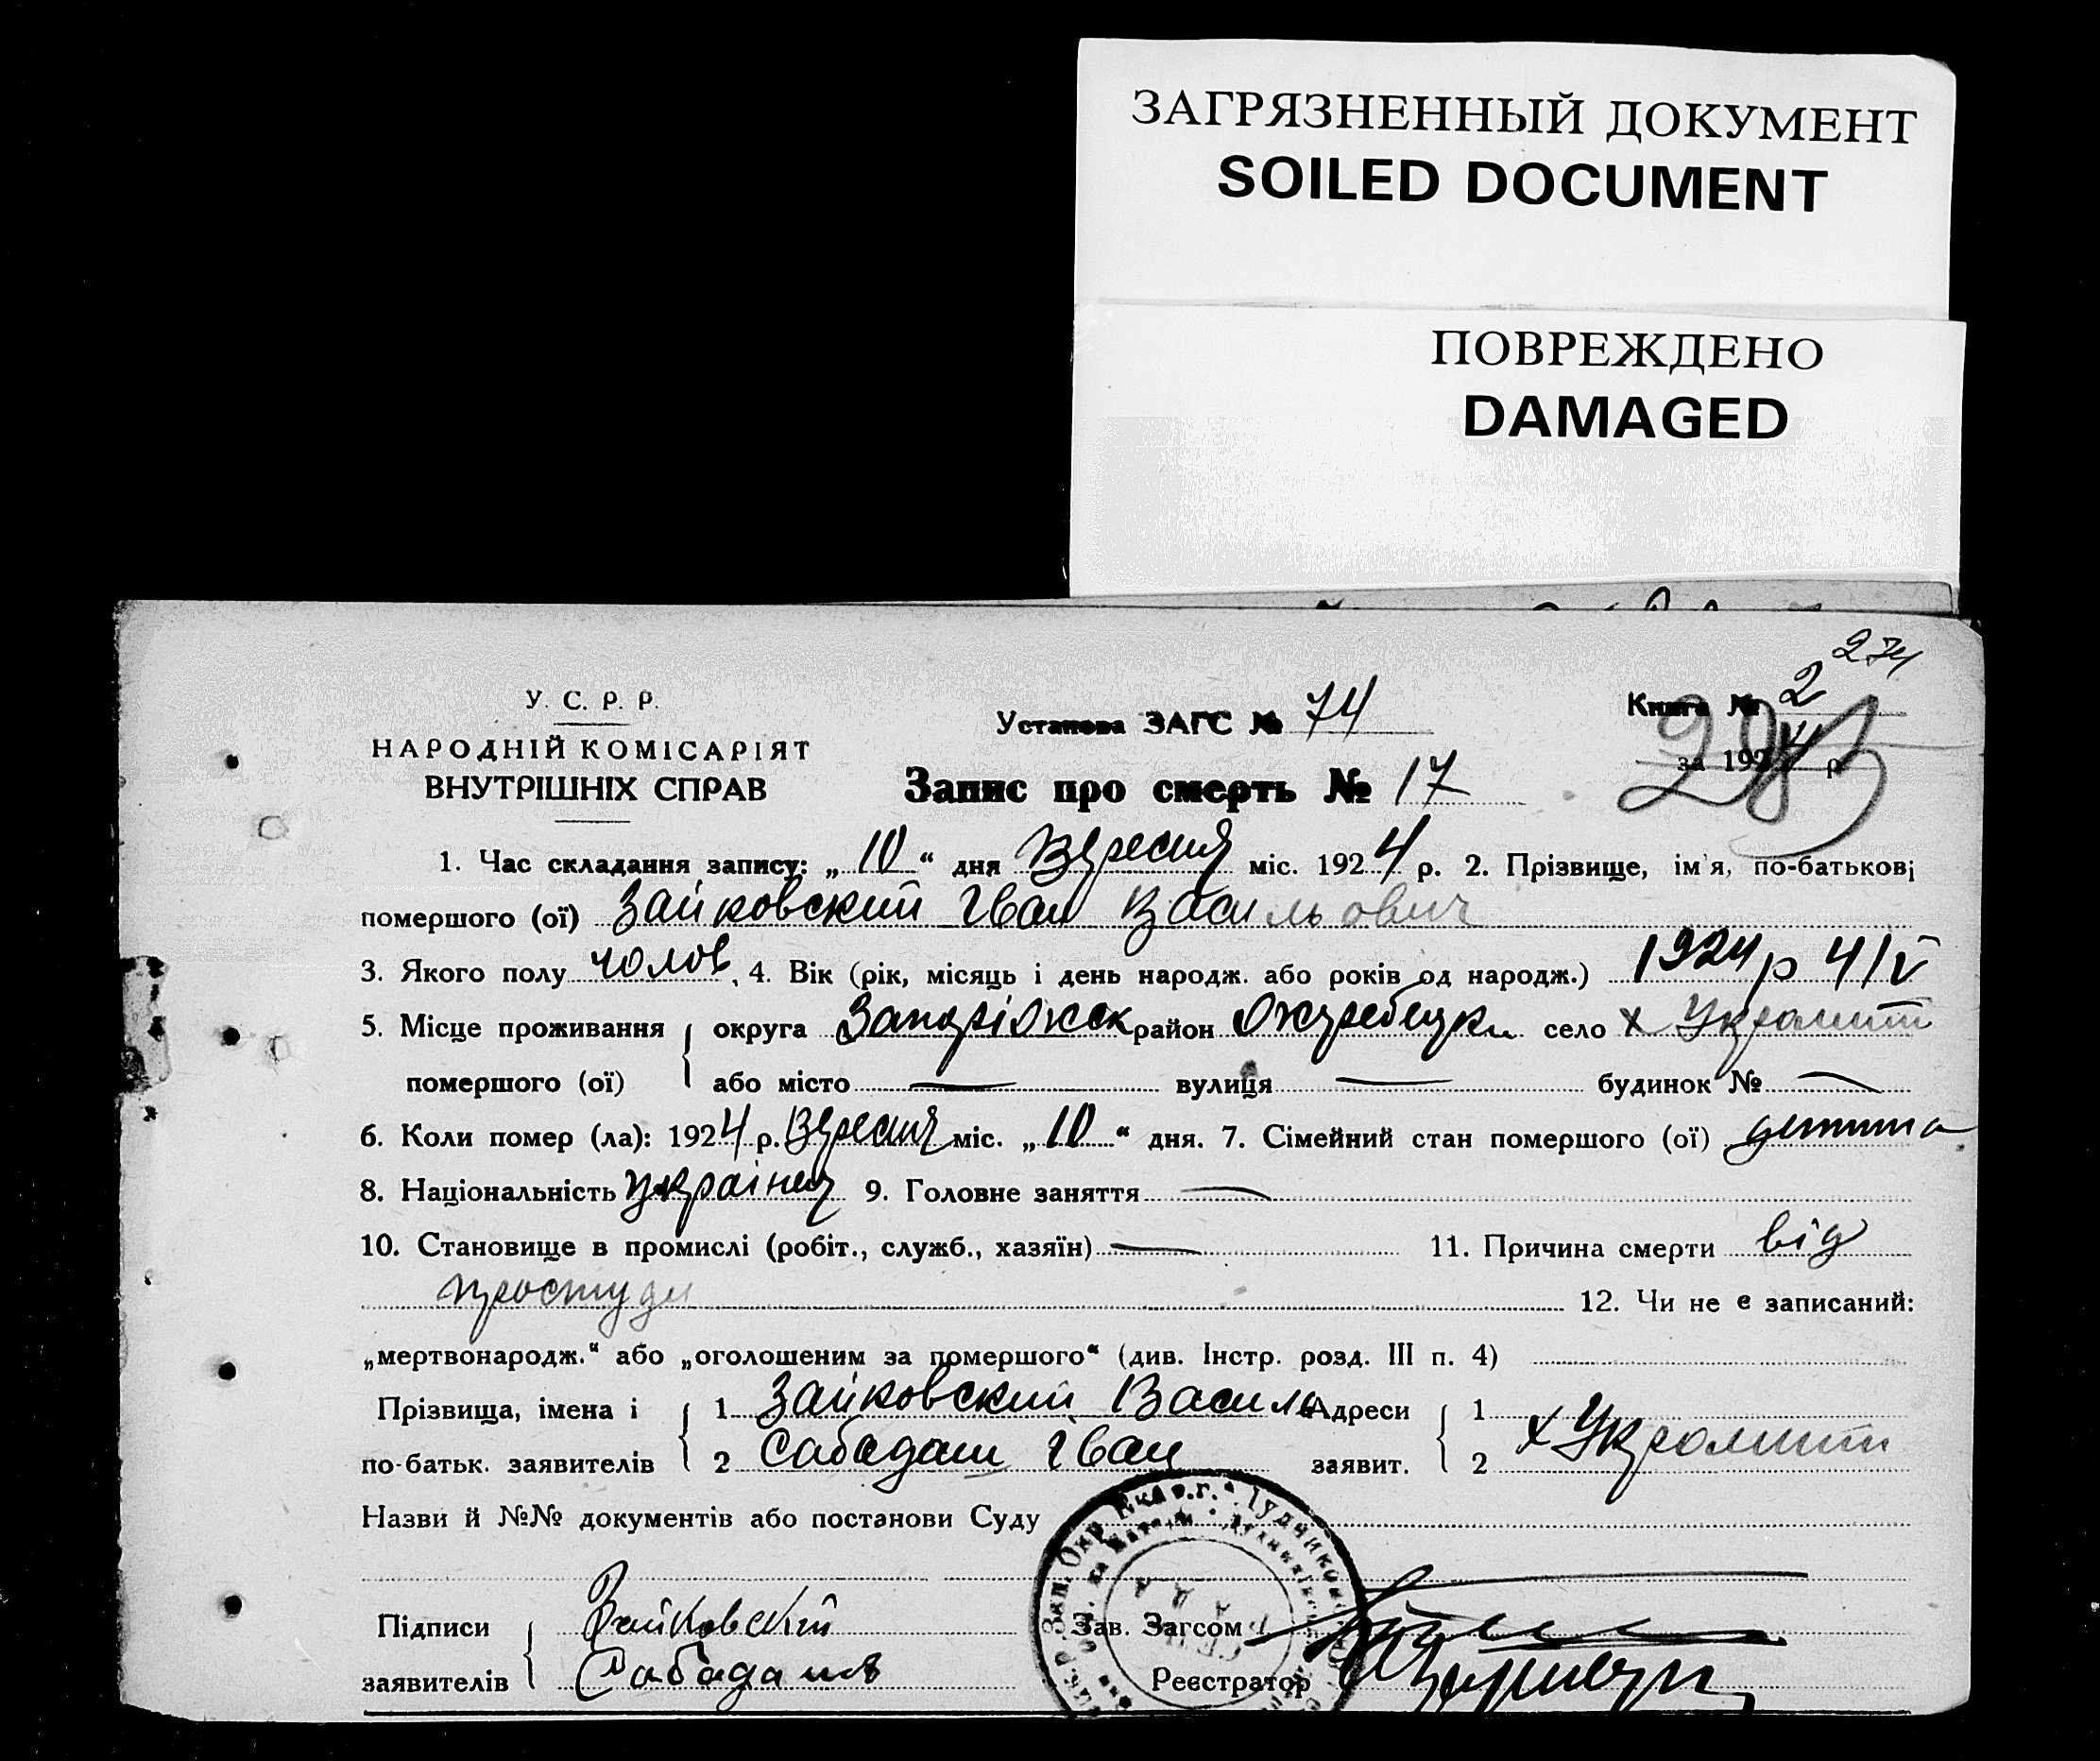 ЗАГРЯЗНЕННЫЙ ДОКУМЕНТ
SOILED DOCUMENT
ПОВРЕЖДЕНО
DAMAGED
274
У. С. Р. Р.
НАРОДНІЙ КОМІСАРІЯТ
ВНУТРІШНІХ СПРАВ
Установа ЗАГС № 74
Книга № 2
за 1924 р.
Запис про смерть № 17
1. Час складання запису: „10“ дня Вересня міс. 1924 р. 2. Прізвище, ім'я, по-батькові
помершого (ої) Зайковский Іван Васильович
3. Якого полу чолов, 4. Вік (рік, місяць і день народж. або років од народж.) 1924 р 4/V
5. Місце проживання округа Запоріжск район село х
помершого (ої) або місто — вулиця — будинок № —
6. Коли помер (ла): 1924 р. Вересня міс. „10“ дня. 7. Сімейний стан помершого (ої) дитина
8. Національність українец 9. Головне заняття —
10. Становище в промислі (робіт., служб., хазяїн) — 11. Причина смерти від
простуди
12. Чи не є записаний:
„мертвонародж.“ або „оголошеним за помершого“ (див. Інстр. розд. III п. 4)
Прізвища, імена і 1 Зайковский Василь Адреси 1
по-батьк. заявителів 2 Сабадаш Іван заявит. 2 х
Назви й №№ документів або постанови Суду
Підписи Зайковский Зав. Загсом
заявителів Сабадашь Реєстратор